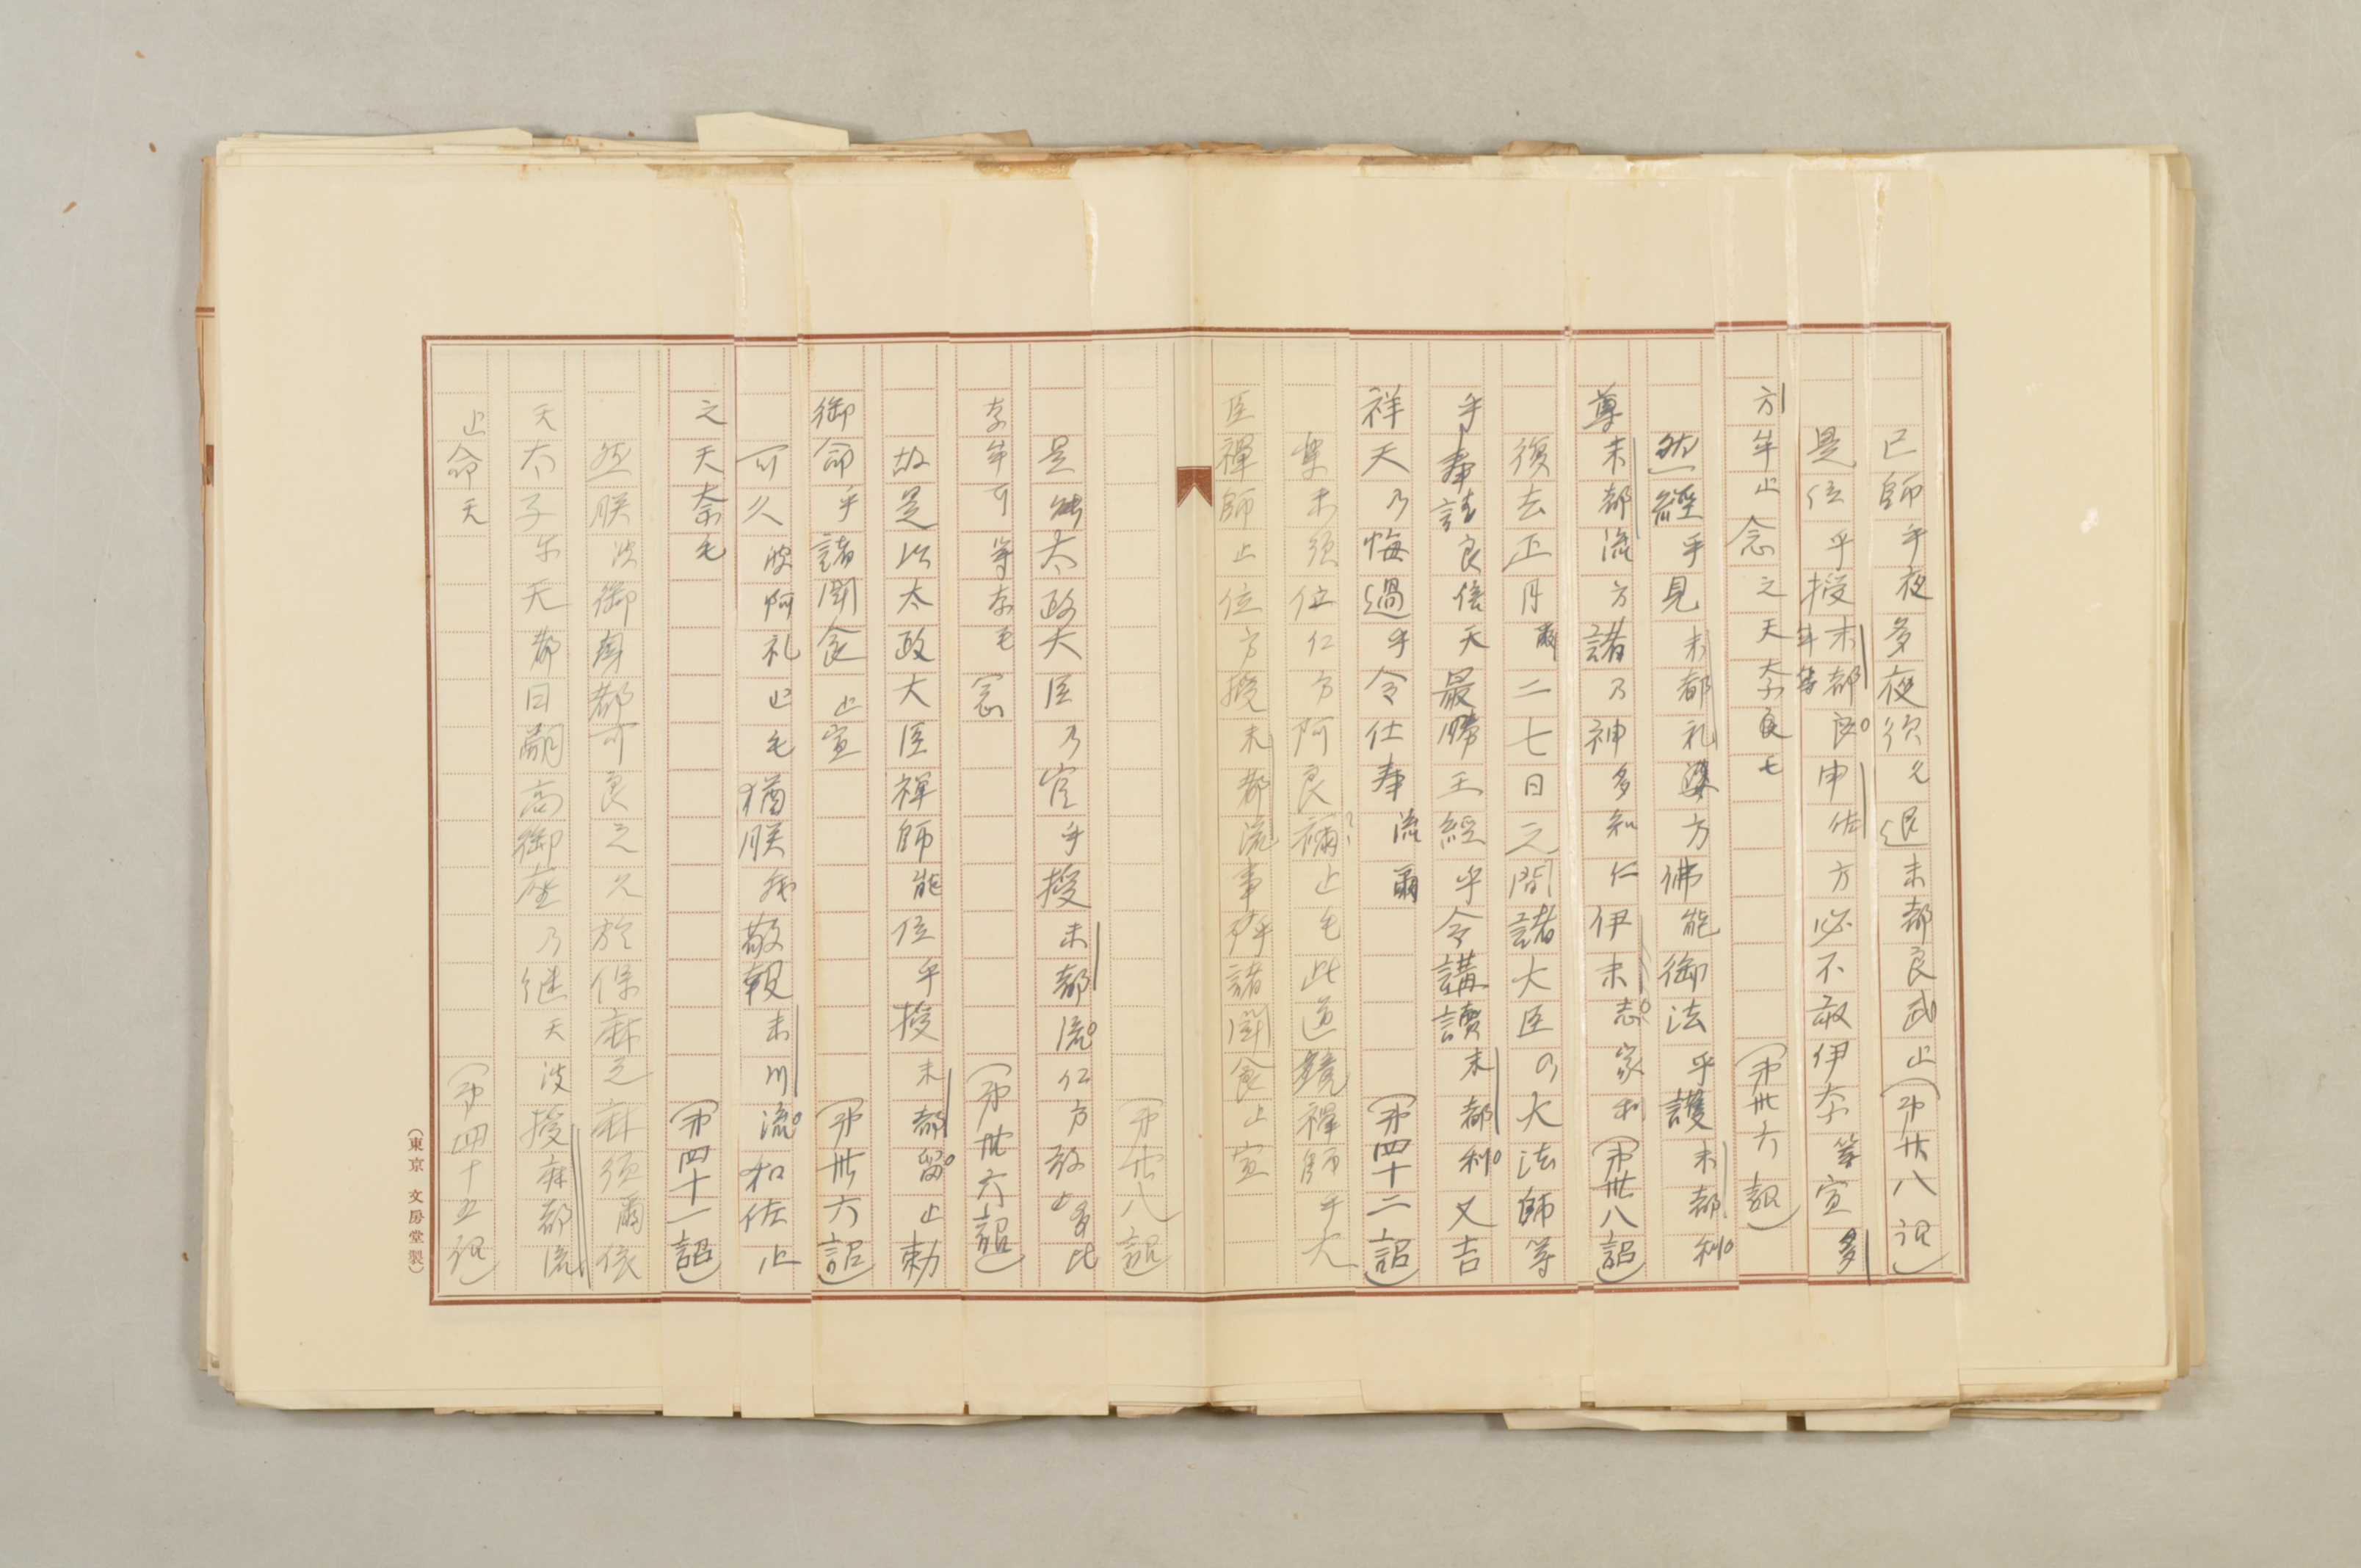 己師乎夜多夜須久退末都良武止(第廿八詔)
是位乎授末都良牟等申佐方必不敢伊奈等宣多
方牟止念之天奈良毛(第卅六詔)
然經乎見末都礼婆方佛能御法乎護末都利
尊末都流方諸乃神多知仁伊末志家利(第卅八詔)
復去正月爾二七日之間諸大臣の大法師等
乎奉請良倍天最勝王經乎令講讀末都利又吉
祥天乃悔過乎令仕奉流爾(第四十二詔)
樂末須位仁方阿良禰止毛此道鏡禪師乎大
臣禪師止位方授末都流事乎諸聞食止宣
(第廿八詔)
是能太政大臣乃官乎授末都流仁方敢止多比
奈牟可等奈毛念(第卅六詔)
故是以太政大臣禪師能位乎授末都留止勅
御命乎諸聞食止宣(第卅六詔)
可久波阿礼止毛猶朕我敬報末川流和佐止
之天奈毛(第四十一詔)
然朕波御身都可良之久於保麻之麻須爾依
天太子尓天都日嗣高御座乃継天波授麻都流
止命天(第四十五詔)
(東京 文房堂製)